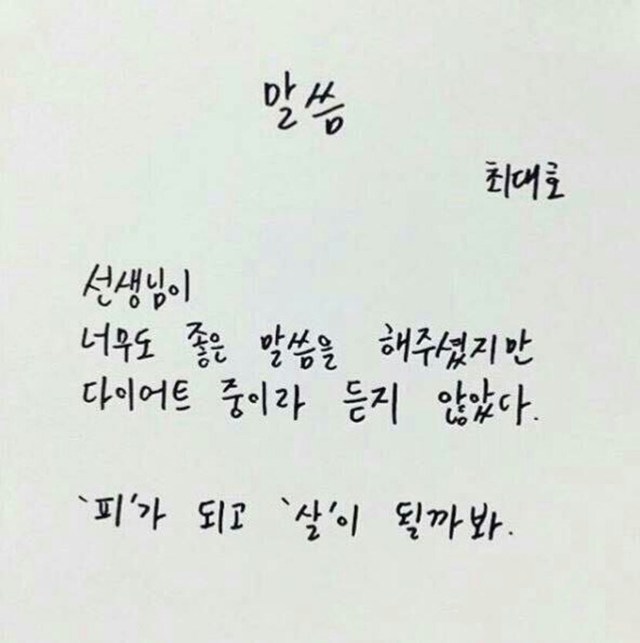 말씀
최대호
선생님이
너무도 좋은 말씀을 해주셨지만
다이어트 중이라 듣지 않았다.
'피'가 되고 '살'이 될까봐.